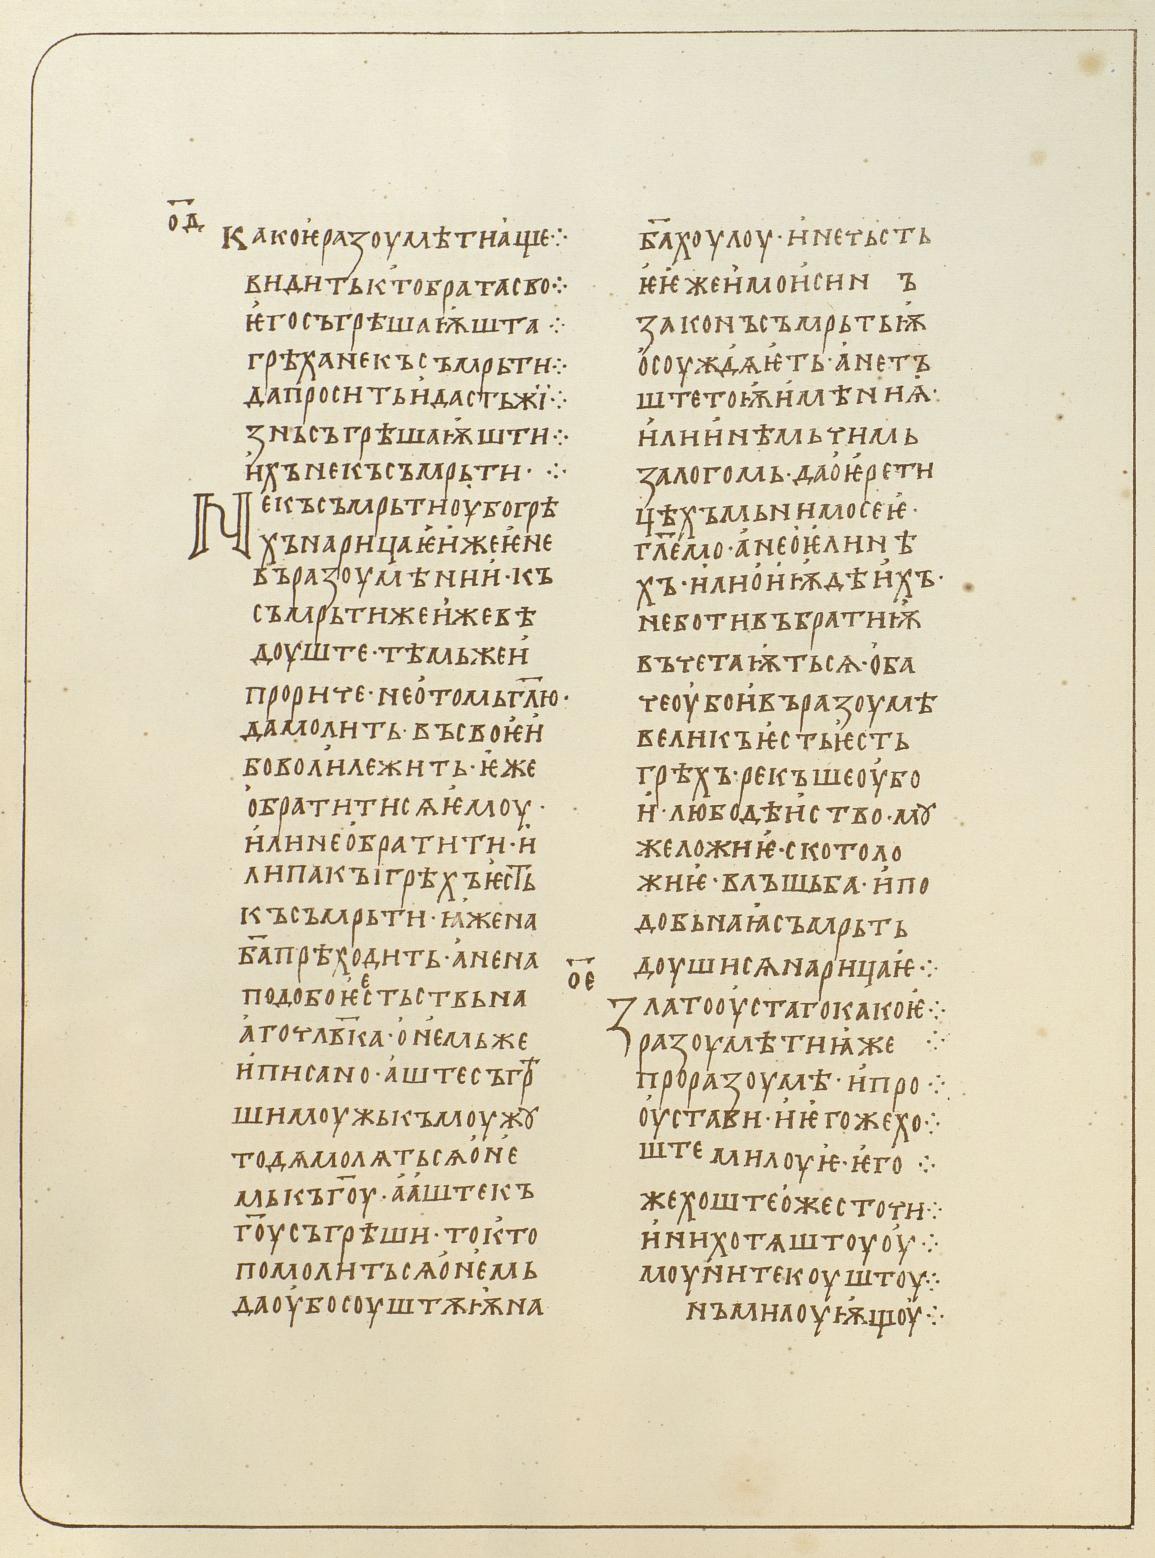 о҃д
Какоѥразоумѣтиаще
видитьктобратасво
ѥгосъгрѣшаѭшта
грѣханекъсъмрьти
дапроситьидастьжї
зньсъгрѣшаѭшти
ихънекъсъмрьти ·
Некъсъмрьтиоубогрѣ
хънарицаѥижеѥне
въразоумѣнии · къ
съмрьтижеижевѣ
доуште · тѣмьжеи
прориче · неотомьгл҃ю ·
дамолить · въсвоѥи
боволилежить · ѥже
обратитисѧѥмоу ·
илинеобратити · и
липакыгрѣхъѥсть
късъмрьти · ꙗжена
ба҃прѣходить · анена
подобоѥстьствьна
агочлв҃ка · онемьже
иписано · аштесъгр
шимоужькъмоужꙋ
тодѧмолѧтьсѧоне
мькъго҃у · аштекъ
го҃усъгрѣши · токто
помолитьсѧонемь
даоубосоуштѫѭна
ба҃хоулоу · инечьсть
ѥѥжеимоисии ъ
законъсъмрьтьѭ
осоуждаѥть · анетъ
штетоѭимѣниꙗ ·
илиинѣмьчимь
залогомь · даоѥрети
цѣхъмьнимосеѥ ·
гл҃емо · анеоѥлинѣ
хъ · илиониѫдѣихъ ·
неботивъбратиѭ
въчетаѭтьсѧ · оба
чеоубоивъразоумѣ
великъѥстьѥсть
грѣхъ · рекъшеоубо
и · любодѣиство · мꙋ
желожиѥ · скотоло
жиѥ · влъшьба · ипо
добьнаꙗсъмрьть
доушисѧнарицаѥ ·
о҃е
Златооустагокакоѥ
разоумѣтиꙗже
проразоумѣ · ипро
оустави · иѥгожехо
штемилоуѥ · ѥго
жехоштеожесточи
инихотѧштоуоу ·
моунитекоуштоу
нъмилоуѭщоу